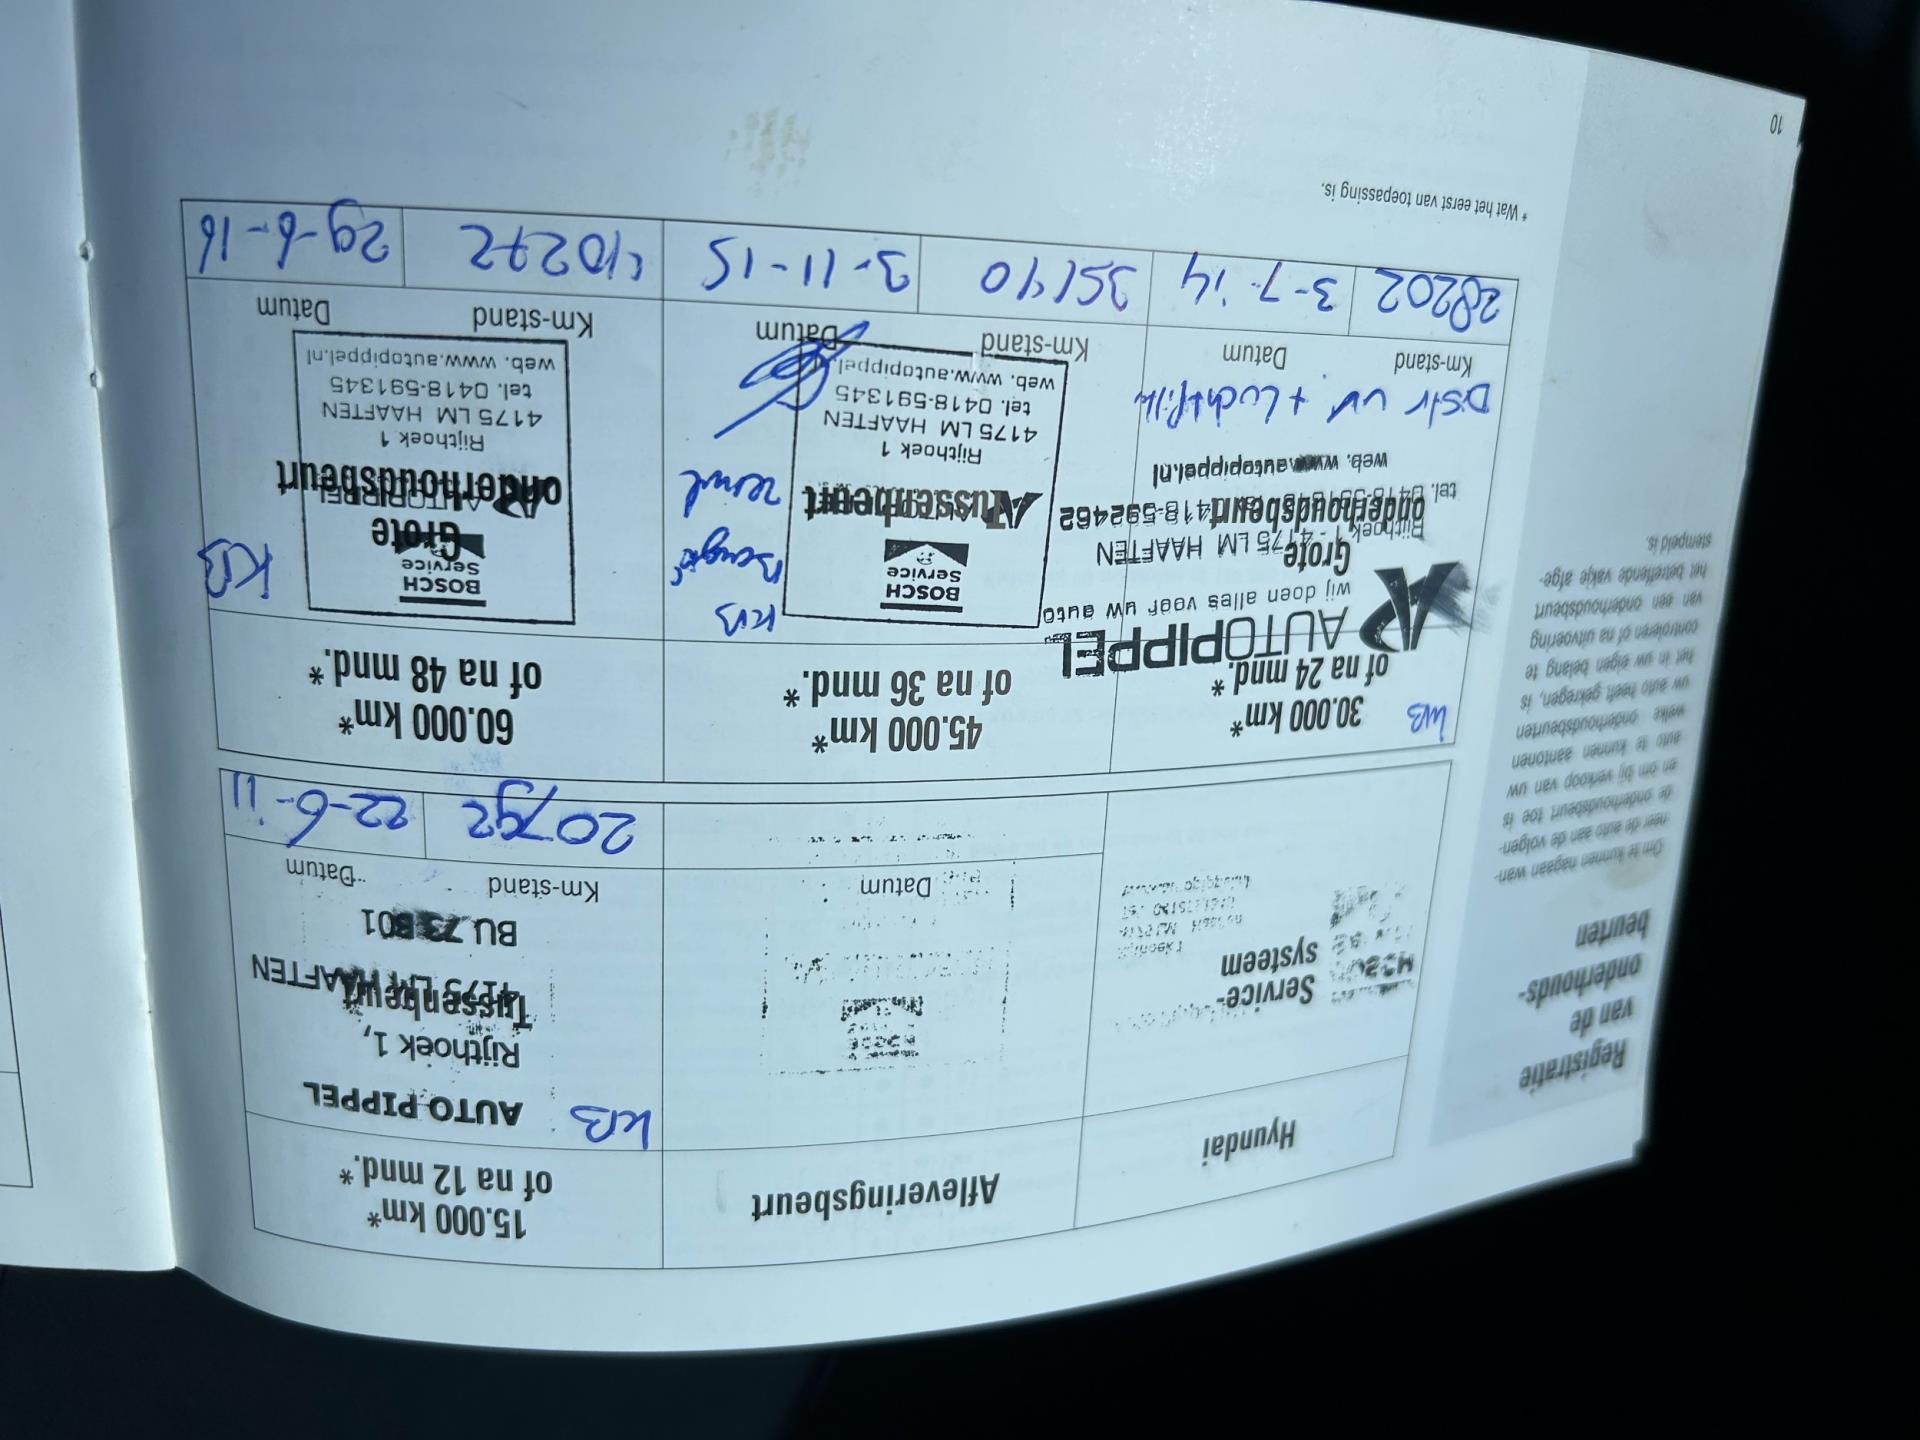 Registratie
van de
onderhouds-
beurten
Om te kunnen nagaan wan-
neer de auto aan de volgen-
de onderhoudsbeurt toe is
en om bij verkoop van uw
auto te kunnen aantonen
welke onderhoudsbeurten
uw auto heeft gekregen, is
het in uw eigen belang te
controleren of na uitvoering
van een onderhoudsbeurt
het betreffende vakje afge-
stempeld is.
Hyundai
Service-
systeem
Afleveringsbeurt
Datum
15.000 km*
of na 12 mnd.*
KB
AUTO PIPPEL
Rijthoek 1,
Tussenbeurt
4175 LM HAAFTEN
BU 73 B01
Km-stand Datum
20792 22-6-11
KB
30.000 km*
of na 24 mnd.*
AUTOPIPPEL
wij doen alles voor uw auto
Grote
Rijthoek 1 - 4175 LM HAAFTEN
onderhoudsbeurt
web. www.autopippel.nl
Distr vv + Luchtfilter
Km-stand Datum
28202 3-7-14
45.000 km*
of na 36 mnd.*
KB
BOSCH
Service
Tussenbeurt
Rijthoek 1
4175 LM HAAFTEN
tel. 0418-591345
web. www.autopippel.nl
Km-stand Datum
35140 3-11-15
60.000 km*
of na 48 mnd.*
BOSCH
Service
KB
Grote
AUTOPIPPEL
onderhoudsbeurt
Rijthoek 1
4175 LM HAAFTEN
tel. 0418-591345
web. www.autopippel.nl
Km-stand Datum
40272 29-6-16
* Wat het eerst van toepassing is.
10